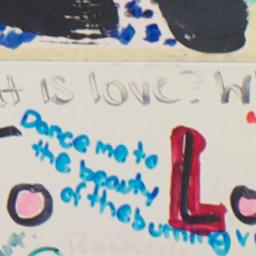 t is love? W
Dance me to
the beauty
of the burning v
L